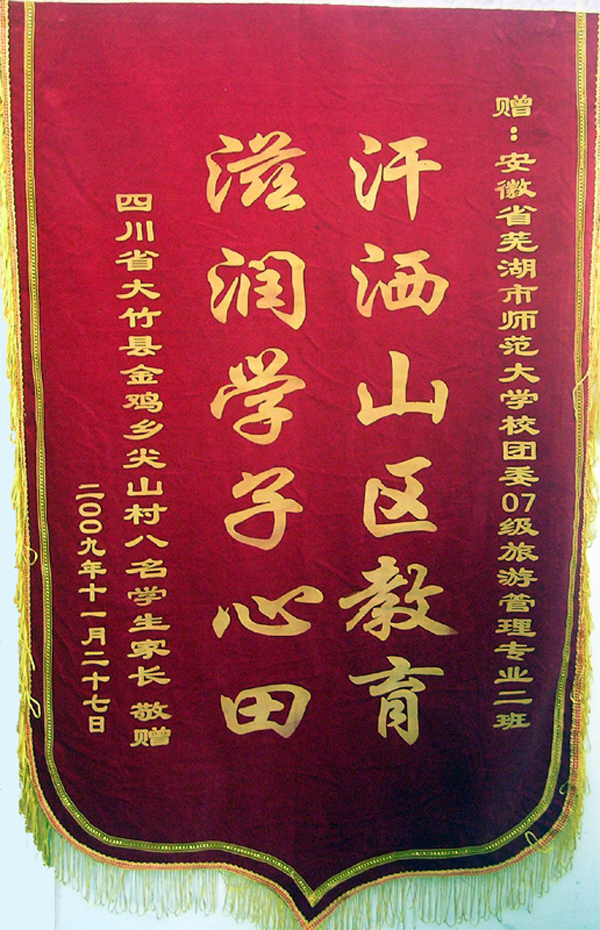 赠：安徽省芜湖市师范大学校团委07级旅游管理专业二班
汗洒山区教育
滋润学子心田
四川省大竹县金鸡乡尖山村八名学生家长 敬赠
二〇〇九年十一月二十七日